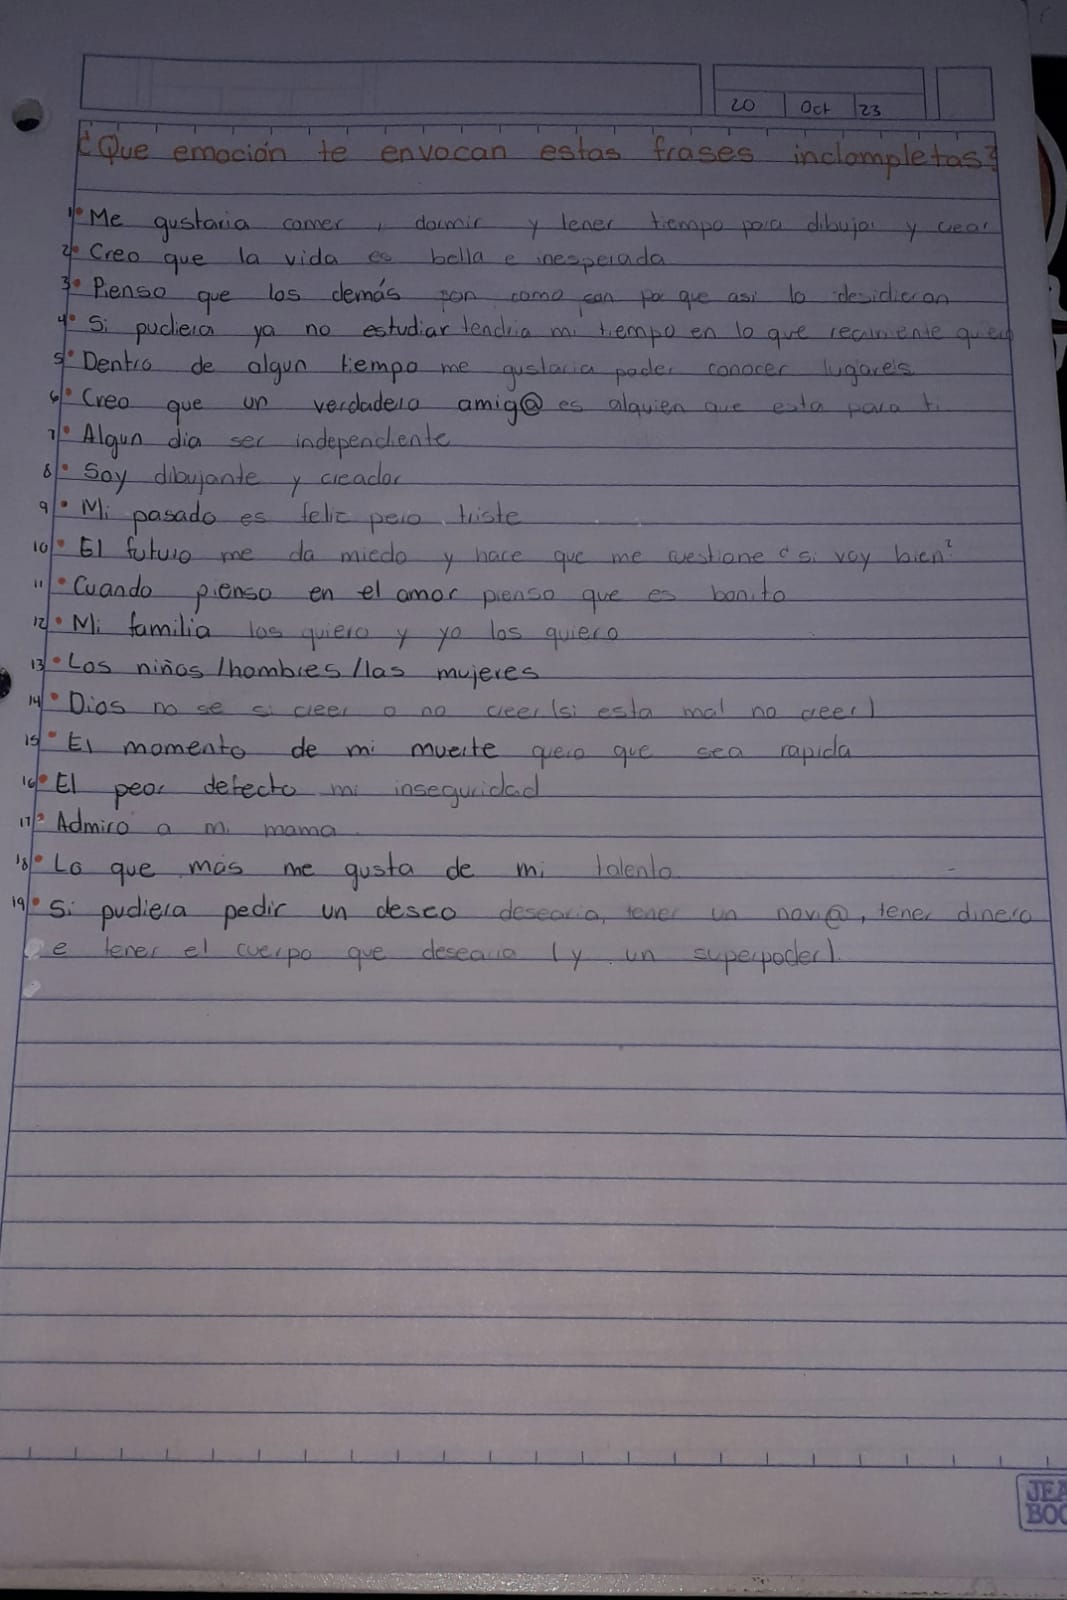 20 Oct 23
¿Que emoción te envocan estas frases inclompletas?
1• Me gustaria comer, dormir y tener tiempo para dibujar y crear
2• Creo que la vida es bella e inesperada
3• Pienso que los demás son como son por que asi lo desidieron
4• Si pudiera ya no estudiar tendria mi tiempo en lo que realmente
5• Dentro de algun tiempo me gustaria poder conocer lugares
6• Creo que un verdadero amig@ es alguien que esta para ti
7• Algun dia ser independiente
8• Soy dibujante y creador
9• Mi pasado es feliz pero triste
10• El futuro me da miedo y hace que me cuestione ¿si voy bien?
11• Cuando pienso en el amor pienso que es bonito
12• Mi familia los quiero y yo los quiero
13• Los niños /hombres /las mujeres
14• Dios no se si creer o no creer (si esta mal no creer)
15• El momento de mi muerte quero que sea rapida
16• El peor defecto mi inseguridad
17• Admiro a mi mama
18• Lo que más me gusta de mi talento
19• Si pudiera pedir un deseo desearia, tener un novi@, tener dinero
e tener el cuerpo que desearia (y un superpoder).
JEA
BOO